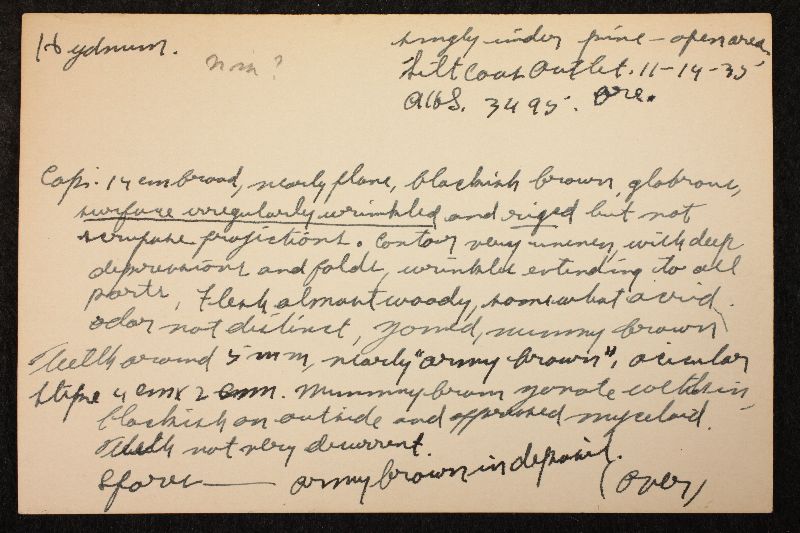 Hydnum.
singly under pine - open area.
Siltcoos Outlet. 11-14-35
3495. Ore.
Cap: 14 cm broad, nearly plane, blackish brown, glabrous,
surface irregularly wrinkled and riged but not
scrupose projections. Contour very uneven, with deep
depressions and folds, wrinkles extending to all
parts, Flesh almost woody, somewhat acrid.
odor not distinct, zoned, mummy brown
Teeth around 5 mm, nearly "army brown", acicular
Stipe 4 cm x 2 cm. Mummy brown zonate within,
blackish on outside and appressed myceloid.
Teeth not very decurrent.
Spores — army brown in deposit.
(over)